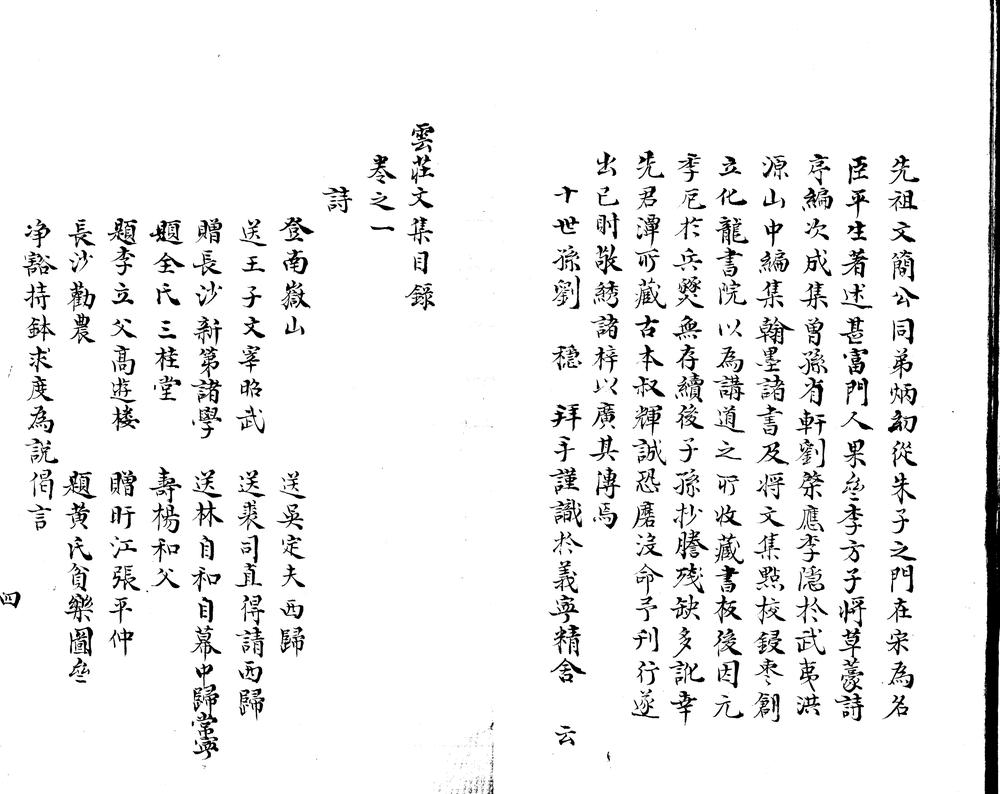 先祖文簡公同弟炳𥘉從朱子之門在宋為名
臣平生著述甚富門人果齋李方子將草藁詩
序編次成集曾孫省軒劉𣒌應李隠於武夷洪
源山中編集翰墨諸書及將文集㸃校鋟枣創
立化龍書院以為講道之所收藏書板後因元
季厄於兵燹無存續後子孫抄謄残缺多訛幸
先君潭所藏古本叔輝誠恐磨没命予刊行遂
出已財敬綉諸梓以廣其傳焉
十世孫劉　穩　拜手謹識於義寧精舍　云
雲莊文集目錄
卷之一
詩
登南嶽山　送吳定夫西歸
送王子文宰昭武　送裘司直得請西歸
贈長沙新第諸學　送林自和自幕中歸常寧
題全氏三桂堂　壽楊和父
題李立父高遊楼　贈盱江張平仲
長沙勸農　題黄氏貧樂圖
净豁持鉢求度為説偈言
四